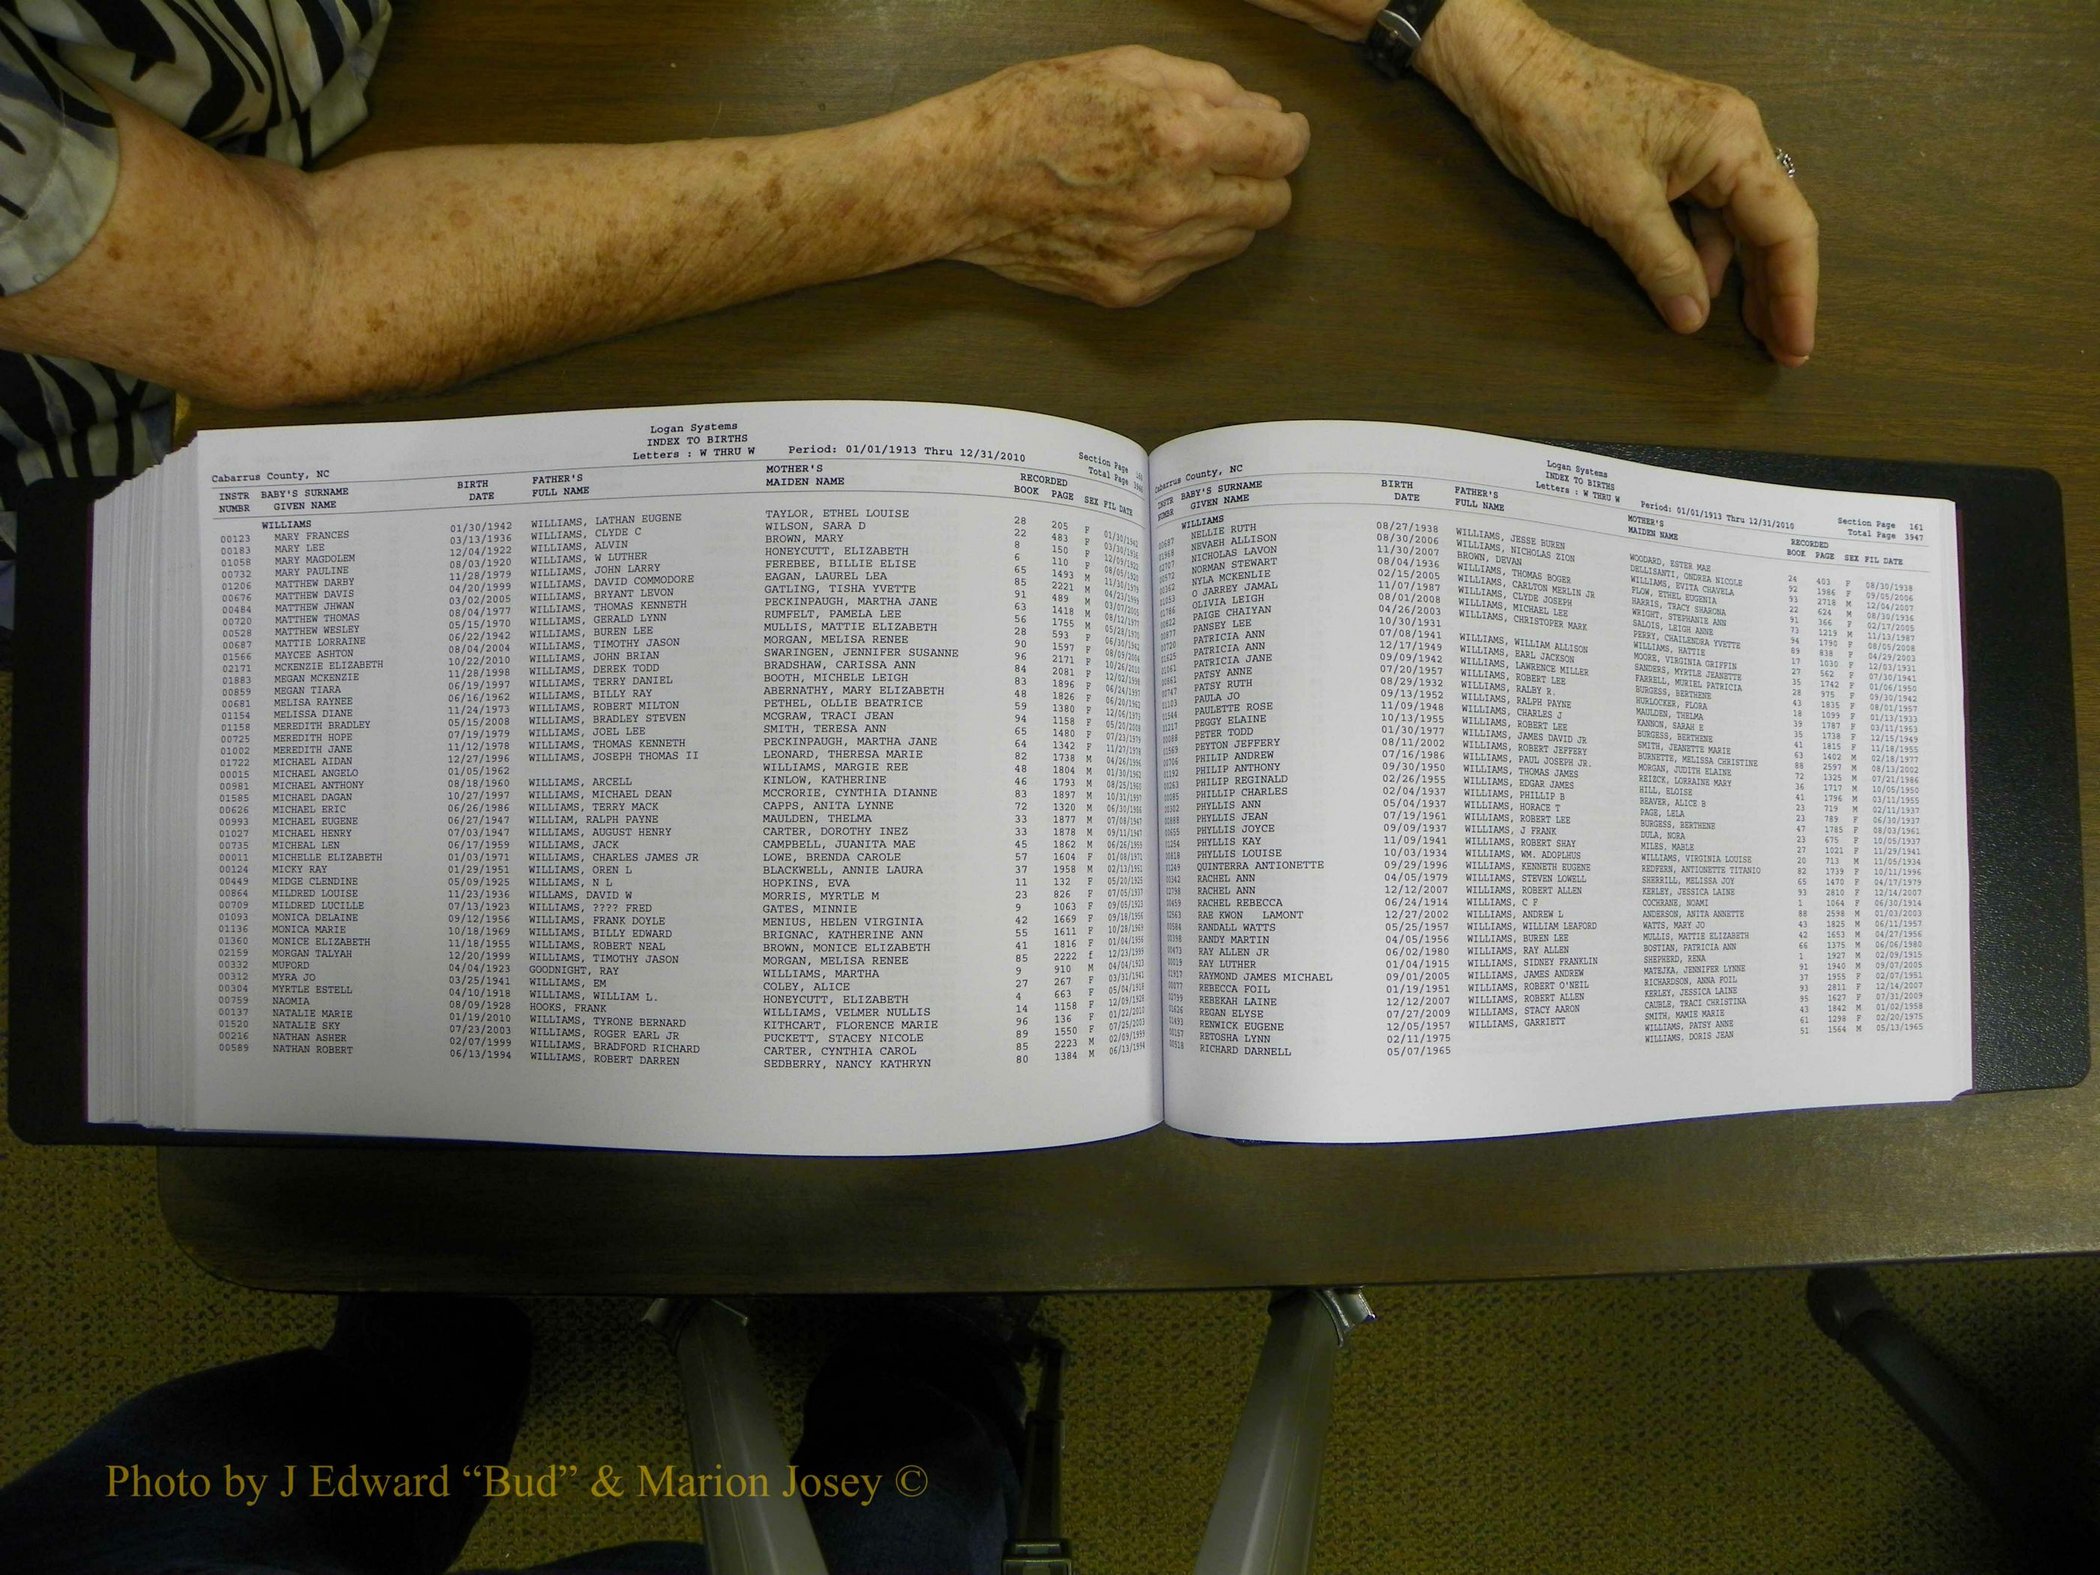 Logan Systems
INDEX TO BIRTHS
Letters : W THRU W Period: 01/01/1913 Thru 12/31/2010
Cabarrus County, NC Section Page 160
Total Page 3946
INSTR BABY'S SURNAME BIRTH FATHER'S MOTHER'S RECORDED
NUMBR GIVEN NAME DATE FULL NAME MAIDEN NAME BOOK PAGE SEX FIL DATE
WILLIAMS
00123 MARY FRANCES 01/30/1942 WILLIAMS, LATHAN EUGENE TAYLOR, ETHEL LOUISE 28 205 F 01/30/1942
00183 MARY LEE 03/13/1936 WILLIAMS, CLYDE C WILSON, SARA D 22 483 F 03/30/1936
01058 MARY MAGDOLEM 12/04/1922 WILLIAMS, ALVIN BROWN, MARY 8 150 F 12/09/1922
00732 MARY PAULINE 08/03/1920 WILLIAMS, W LUTHER HONEYCUTT, ELIZABETH 6 110 F 08/05/1920
01206 MATTHEW DARBY 11/28/1979 WILLIAMS, JOHN LARRY FEREBEE, BILLIE ELISE 65 1493 M 11/30/1979
00676 MATTHEW DAVIS 04/20/1999 WILLIAMS, DAVID COMMODORE EAGAN, LAUREL LEA 85 2221 M 04/23/1999
00484 MATTHEW JHWAN 03/02/2005 WILLIAMS, BRYANT LEVON GATLING, TISHA YVETTE 91 489 M 03/07/2005
00720 MATTHEW THOMAS 08/04/1977 WILLIAMS, THOMAS KENNETH PECKINPAUGH, MARTHA JANE 63 1418 M 08/12/1977
00528 MATTHEW WESLEY 05/15/1970 WILLIAMS, GERALD LYNN RUMFELT, PAMELA LEE 56 1755 M 05/28/1970
00687 MATTIE LORRAINE 06/22/1942 WILLIAMS, BUREN LEE MULLIS, MATTIE ELIZABETH 28 593 F 06/30/1942
01566 MAYCEE ASHTON 08/04/2004 WILLIAMS, TIMOTHY JASON MORGAN, MELISA RENEE 90 1597 F 08/09/2004
02171 MCKENZIE ELIZABETH 10/22/2010 WILLIAMS, JOHN BRIAN SWARINGEN, JENNIFER SUSANNE 96 2171 F 10/26/2010
01883 MEGAN MCKENZIE 11/28/1998 WILLIAMS, DEREK TODD BRADSHAW, CARISSA ANN 84 2081 F 12/02/1998
00859 MEGAN TIARA 06/19/1997 WILLIAMS, TERRY DANIEL BOOTH, MICHELE LEIGH 83 1896 F 06/24/1997
00681 MELISA RAYNEE 06/16/1962 WILLIAMS, BILLY RAY ABERNATHY, MARY ELIZABETH 48 1826 F 06/20/1962
01154 MELISSA DIANE 11/24/1973 WILLIAMS, ROBERT MILTON PETHEL, OLLIE BEATRICE 59 1380 F 12/06/1973
01158 MEREDITH BRADLEY 05/15/2008 WILLIAMS, BRADLEY STEVEN MCGRAW, TRACI JEAN 94 1158 F 05/20/2008
00725 MEREDITH HOPE 07/19/1979 WILLIAMS, JOEL LEE SMITH, TERESA ANN 65 1480 F 07/23/1979
01002 MEREDITH JANE 11/12/1978 WILLIAMS, THOMAS KENNETH PECKINPAUGH, MARTHA JANE 64 1342 F 11/27/1978
01722 MICHAEL AIDAN 12/27/1996 WILLIAMS, JOSEPH THOMAS II LEONARD, THERESA MARIE 82 1738 M
00015 MICHAEL ANGELO 01/05/1962 WILLIAMS, MARGIE REE 48 1804 M 01/30/1962
00981 MICHAEL ANTHONY 08/18/1960 WILLIAMS, ARCELL KINLOW, KATHERINE 46 1793 M 08/25/1960
01585 MICHAEL DAGAN 10/27/1997 WILLIAMS, MICHAEL DEAN MCCRORIE, CYNTHIA DIANNE 83 1897 M 10/31/1997
00626 MICHAEL ERIC 06/26/1986 WILLIAMS, TERRY MACK CAPPS, ANITA LYNNE 72 1320 M 06/30/1986
00993 MICHAEL EUGENE 06/27/1947 WILLIAM, RALPH PAYNE MAULDEN, THELMA 33 1877 M 07/08/1947
01027 MICHAEL HENRY 07/03/1947 WILLIAMS, AUGUST HENRY CARTER, DOROTHY INEZ 33 1878 M 09/11/1947
00735 MICHEAL LEN 06/17/1959 WILLIAMS, JACK CAMPBELL, JUANITA MAE 45 1862 M 06/26/1959
00011 MICHELLE ELIZABETH 01/03/1971 WILLIAMS, CHARLES JAMES JR LOWE, BRENDA CAROLE 57 1604 F 01/08/1971
00124 MICKY RAY 01/29/1951 WILLIAMS, OREN L BLACKWELL, ANNIE LAURA 37 1958 M 02/13/1951
00449 MIDGE CLENDINE 05/09/1925 WILLIAMS, N L HOPKINS, EVA 11 132 F 05/20/1925
00864 MILDRED LOUISE 11/23/1936 WILLAMS, DAVID W MORRIS, MYRTLE M 23 826 F 07/05/1937
00709 MILDRED LUCILLE 07/13/1923 WILLIAMS, ???? FRED GATES, MINNIE 9 1063 F 09/05/1923
01093 MONICA DELAINE 09/12/1956 WILLIAMS, FRANK DOYLE MENIUS, HELEN VIRGINIA 42 1669 F 09/18/1956
01136 MONICA MARIE 10/18/1969 WILLIAMS, BILLY EDWARD BRIGNAC, KATHERINE ANN 55 1611 F 10/28/1969
01360 MONICE ELIZABETH 11/18/1955 WILLIAMS, ROBERT NEAL BROWN, MONICE ELIZABETH 41 1816 F 01/04/1956
02159 MORGAN TALYAH 12/20/1999 WILLIAMS, TIMOTHY JASON MORGAN, MELISA RENEE 85 2222 f 12/23/1999
00332 MUFORD 04/04/1923 GOODNIGHT, RAY WILLIAMS, MARTHA 9 910 M 04/04/1923
00312 MYRA JO 03/25/1941 WILLIAMS, EM COLEY, ALICE 27 267 F 03/31/1941
00304 MYRTLE ESTELL 04/10/1918 WILLIAMS, WILLIAM L. HONEYCUTT, ELIZABETH 4 663 F 05/04/1918
00759 NAOMIA 08/09/1928 HOOKS, FRANK WILLIAMS, VELMER NULLIS 14 1158 F 12/09/1928
00137 NATALIE MARIE 01/19/2010 WILLIAMS, TYRONE BERNARD KITHCART, FLORENCE MARIE 96 136 F 01/22/2010
01520 NATALIE SKY 07/23/2003 WILLIAMS, ROGER EARL JR PUCKETT, STACEY NICOLE 89 1550 F 07/25/2003
00216 NATHAN ASHER 02/07/1999 WILLIAMS, BRADFORD RICHARD CARTER, CYNTHIA CAROL 85 2223 M 02/09/1999
00589 NATHAN ROBERT 06/13/1994 WILLIAMS, ROBERT DARREN SEDBERRY, NANCY KATHRYN 80 1384 M 06/13/1994
Logan Systems
INDEX TO BIRTHS
Letters : W THRU W Period: 01/01/1913 Thru 12/31/2010
Cabarrus County, NC Section Page 161
Total Page 3947
INSTR BABY'S SURNAME BIRTH FATHER'S MOTHER'S RECORDED
NUMBR GIVEN NAME DATE FULL NAME MAIDEN NAME BOOK PAGE SEX FIL DATE
WILLIAMS
00687 NELLIE RUTH 08/27/1938 WILLIAMS, JESSE BUREN WOODARD, ESTER MAE 24 403 F 08/30/1938
01968 NEVAEH ALLISON 08/30/2006 WILLIAMS, NICHOLAS ZION DELLISANTI, ONDREA NICOLE 92 1986 F 09/05/2006
02707 NICHOLAS LAVON 11/30/2007 BROWN, DEVAN WILLIAMS, EVITA CHAVELA 93 2718 M 12/04/2007
00572 NORMAN STEWART 08/04/1936 WILLIAMS, THOMAS BOGER PLOW, ETHEL EUGENIA 22 624 M
00362 NYLA MCKENLIE 02/15/2005 WILLIAMS, CARLTON MERLIN JR HARRIS, TRACY SHARONA 91 366 F 02/17/2005
01053 O JARREY JAMAL 11/07/1987 WILLIAMS, CLYDE JOSEPH WRIGHT, STEPHANIE ANN 73 1219 M 11/13/1987
01786 OLIVIA LEIGH 08/01/2008 WILLIAMS, MICHAEL LEE SALOIS, LEIGH ANNE 94 1790 F 08/05/2008
00822 PAIGE CHAIYAN 04/26/2003 WILLIAMS, CHRISTOPER MARK PERRY, CHAILENDRA YVETTE 89 838 F 04/29/2003
00877 PANSEY LEE 10/30/1931 WILLIAMS, HATTIE 17 1030 F 12/03/1931
00720 PATRICIA ANN 07/08/1941 WILLIAMS, WILLIAM ALLISON MOORE, VIRGINIA GRIFFIN 27 562 F 07/30/1941
01625 PATRICIA ANN 12/17/1949 WILLIAMS, EARL JACKSON SANDERS, MYRTLE JEANETTE 35 1742 F 01/06/1950
01061 PATRICIA JANE 09/09/1942 WILLIAMS, LAWRENCE MILLER FARRELL, MURIEL PATRICIA 28 975 F 09/30/1942
00861 PATSY ANNE 07/20/1957 WILLIAMS, ROBERT LEE BURGESS, BERTHENE 43 1835 F 08/01/1957
00747 PATSY RUTH 08/29/1932 WILLIAMS, RALBY R. HURLOCKER, FLORA 18 1099 F 01/13/1933
01103 PAULA JO 09/13/1952 WILLIAMS, RALPH PAYNE MAULDEN, THELMA 39 1787 F 03/11/1953
01544 PAULETTE ROSE 11/09/1948 WILLIAMS, CHARLES J KANNON, SARAH E 35 1738 F 12/15/1949
01217 PEGGY ELAINE 10/13/1955 WILLIAMS, ROBERT LEE BURGESS, BERTHENE 41 1815 F 11/18/1955
00088 PETER TODD 01/30/1977 WILLIAMS, JAMES DAVID JR SMITH, JEANETTE MARIE 63 1402 M 02/18/1977
01569 PEYTON JEFFERY 08/11/2002 WILLIAMS, ROBERT JEFFERY BURNETTE, MELISSA CHRISTINE 88 2597 M 08/13/2002
00706 PHILIP ANDREW 07/16/1986 WILLIAMS, PAUL JOSEPH JR. MORGAN, JUDITH ELAINE 72 1325 M 07/21/1986
01192 PHILIP ANTHONY 09/30/1950 WILLIAMS, THOMAS JAMES REIZCK, LORRAINE MARY 36 1717 M 10/05/1950
00263 PHILIP REGINALD 02/26/1955 WILLIAMS, EDGAR JAMES HILL, ELOISE 41 1796 M 03/11/1955
00085 PHILLIP CHARLES 02/04/1937 WILLIAMS, PHILLIP B BEAVER, ALICE B 23 719 M 02/11/1937
00302 PHYLLIS ANN 05/04/1937 WILLIAMS, HORACE T PAGE, LELA 23 789 F 06/30/1937
00888 PHYLLIS JEAN 07/19/1961 WILLIAMS, ROBERT LEE BURGESS, BERTHENE 47 1785 F 08/03/1961
00655 PHYLLIS JOYCE 09/09/1937 WILLIAMS, J FRANK DULA, NORA 23 675 F 10/05/1937
01254 PHYLLIS KAY 11/09/1941 WILLIAMS, ROBERT SHAY MILES, MABLE 27 1021 F 11/29/1941
00818 PHYLLIS LOUISE 10/03/1934 WILLIAMS, WM. ADOPLHUS WILLIAMS, VIRGINIA LOUISE 20 713 M 11/05/1934
01249 QUINTERRA ANTIONETTE 09/29/1996 WILLIAMS, KENNETH EUGENE REDFERN, ANTIONETTE TITANIO 82 1739 F 10/11/1996
00342 RACHEL ANN 04/05/1979 WILLIAMS, STEVEN LOWELL SHERRILL, MELISSA JOY 65 1470 F 04/17/1979
02798 RACHEL ANN 12/12/2007 WILLIAMS, ROBERT ALLEN KERLEY, JESSICA LAINE 93 2810 F 12/14/2007
00459 RACHEL REBECCA 06/24/1914 WILLIAMS, C F COCHRANE, NOAMI 1 1064 F 06/30/1914
02563 RAE KWON LAMONT 12/27/2002 WILLIAMS, ANDREW L ANDERSON, ANITA ANNETTE 88 2598 M 01/03/2003
00584 RANDALL WATTS 05/25/1957 WILLIAMS, WILLIAM LEAFORD WATTS, MARY JO 43 1825 M 06/11/1957
00398 RANDY MARTIN 04/05/1956 WILLIAMS, BUREN LEE MULLIS, MATTIE ELIZABETH 42 1653 M 04/27/1956
00473 RAY ALLEN JR 06/02/1980 WILLIAMS, RAY ALLEN BOSTIAN, PATRICIA ANN 66 1375 M 06/06/1980
00019 RAY LUTHER 01/04/1915 WILLIAMS, SIDNEY FRANKLIN SHEPHERD, RENA 1 1927 M 02/09/1915
01917 RAYMOND JAMES MICHAEL 09/01/2005 WILLIAMS, JAMES ANDREW MATEJKA, JENNIFER LYNNE 91 1940 M 09/07/2005
00077 REBECCA FOIL 01/19/1951 WILLIAMS, ROBERT O'NEIL RICHARDSON, ANNA FOIL 37 1955 F 02/07/1951
02799 REBEKAH LAINE 12/12/2007 WILLIAMS, ROBERT ALLEN KERLEY, JESSICA LAINE 93 2811 F 12/14/2007
01626 REGAN ELYSE 07/27/2009 WILLIAMS, STACY AARON CAUBLE, TRACI CHRISTINA 95 1627 F 07/31/2009
01493 RENWICK EUGENE 12/05/1957 WILLIAMS, GARRIETT SMITH, MAMIE MARIE 43 1842 M 01/02/1958
00157 RETOSHA LYNN 02/11/1975 WILLIAMS, PATSY ANNE 61 1298 F 02/20/1975
00518 RICHARD DARNELL 05/07/1965 WILLIAMS, DORIS JEAN 51 1564 M 05/13/1965
Photo by J Edward “Bud” & Marion Josey ©